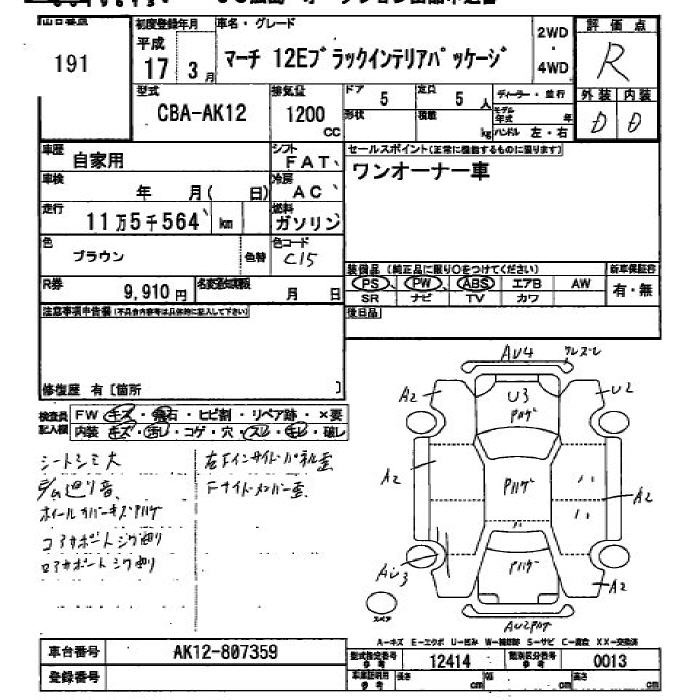 出品番号
191
初度登録年月
平成
17年 3月
車名・グレード
マーチ 12Eブラックインテリアパッケージ
2WD
・
4WD
評価点
R
外装 内装
D D
型式
CBA-AK12
排気量
1200
CC
ドア
5
定員
5 人
形状
積載
kg
ディーラー・並行
モデル年式 年
ハンドル 左・右
車歴
自家用
シフト
FAT
セールスポイント(正常に機能するものに限ります)
ワンオーナー車
車検
年 月( 日)
冷房
AC
走行
11万5千564 km
燃料
ガソリン
色
ブラウン
色替
色コード
C15
R券
9,910円
名変通知期限
月 日
装備品 (純正品に限り○をつけてください)
PS PW ABS エアB AW
SR ナビ TV カワ
新車保証書
有・無
後日品
注意事項申告欄(不具合内容等は具体的に記入して下さい)
修復歴 有〔箇所 〕
検査員
記入欄
FW キズ・飛石・ヒビ割・リペア跡・×要
内装 キズ・汚レ・コゲ・穴・スレ・キレ・破レ
シートシミ大
ホイールカバーキズハゲ
コアサポートシグ切り
ロアサポートシグ切り
左Fインサイドパネル歪
Fサイドメンバー歪
AU4
A2 U3 U2
ハゲ
A2 ハゲ A2
AU3 ハゲ A2
スペア
AU2ハゲ
A-キズ E-エクボ U-凹み W-補修跡 S-サビ C-腐蝕 XX-交換済
車台番号
AK12-807359
型式指定番号
参考
12414
類別区分番号
参考
0013
登録番号
車庫証明用
参考
長さ cm 幅 cm 高さ cm